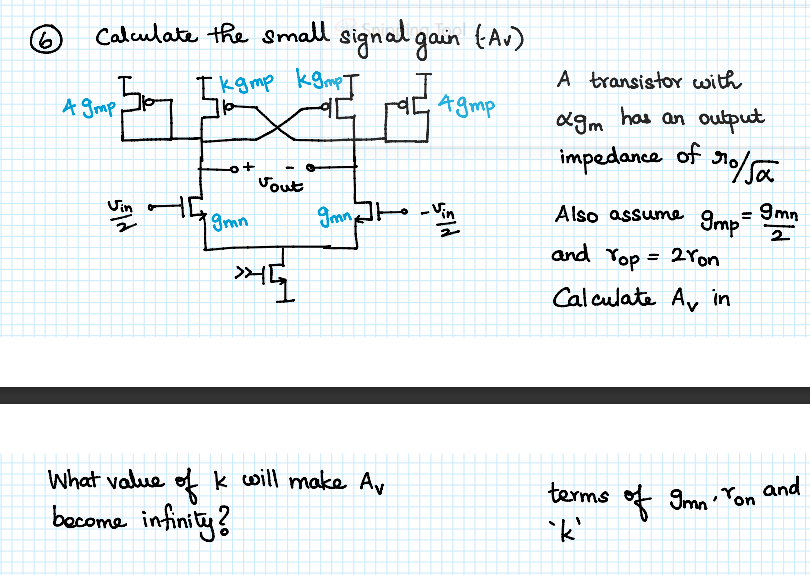 6 Calculate the small signal gain (-Av)
4gmp
kgmp kgmp
4gmp
A transistor with
αgm has an output
impedance of ro/√α
+ vout -
vin/2 gmn gmn -vin/2
Also assume gmp = gmn/2
and rop = 2ron
Calculate Av in
What value of k will make Av
become infinity?
terms of gmn, ron and
'k'